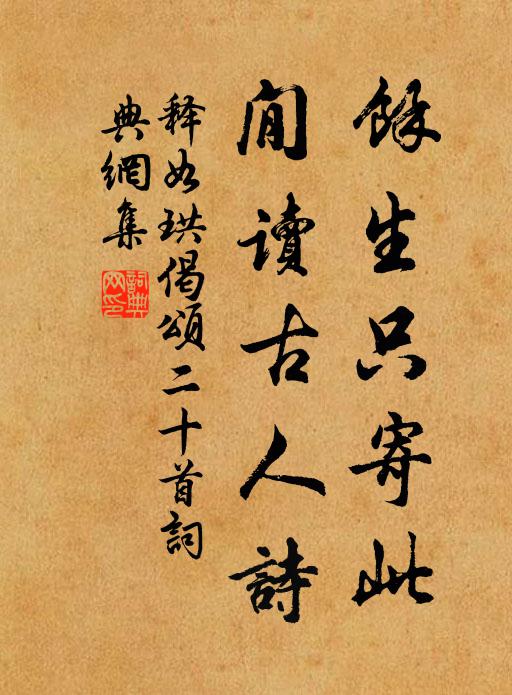 餘生只寄此
閒讀古人詩
释如珙偈頌二十首詞
典網集
詞典網印